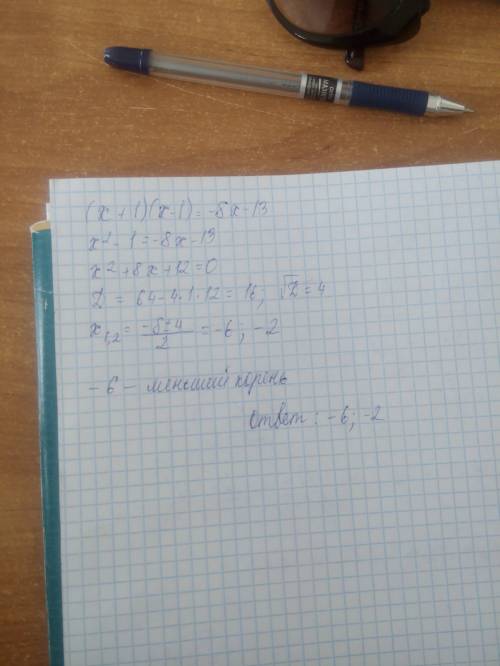 (x+1)(x-1)=-8x-13
x²-1=-8x-13
x²+8x+12=0
D = 64-4·1·12=16; √D=4
x₁,₂= (-8±4)/2 = -6; -2
-6 - меньший корень
Ответ: -6; -2